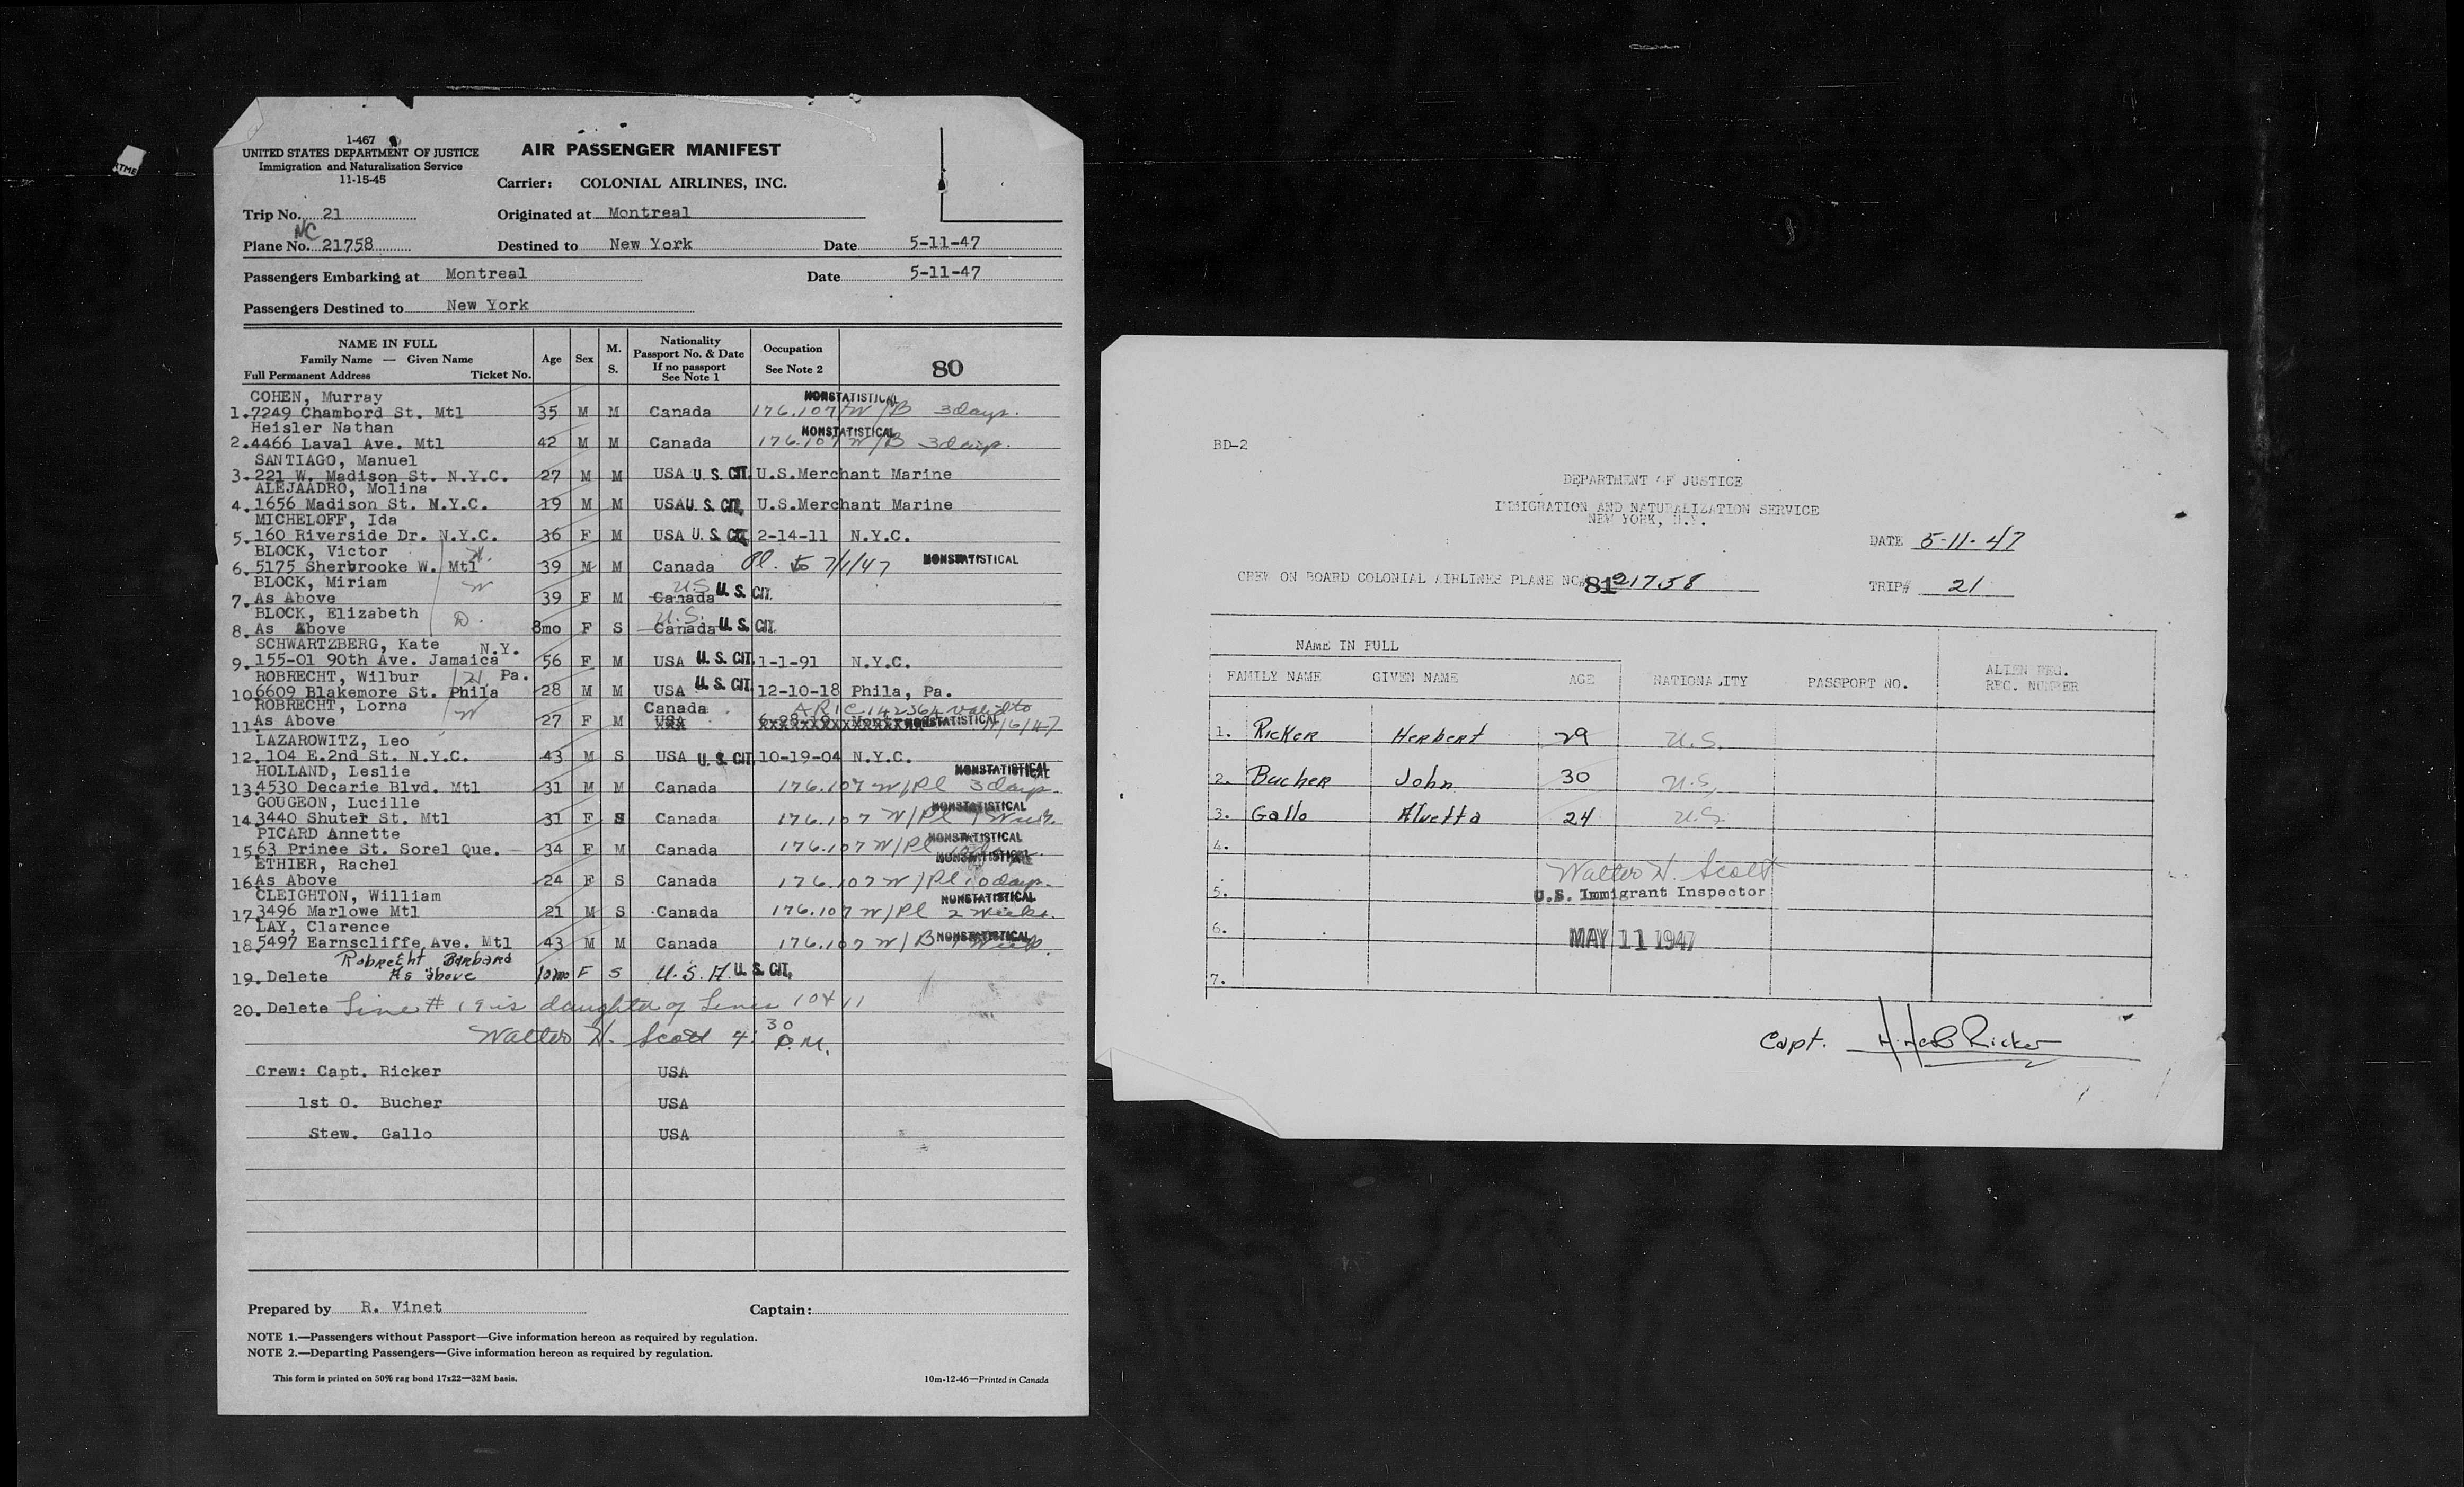 1-467
UNITED STATES DEPARTMENT OF JUSTICE
Immigration and Naturalization Service
11-15-45
AIR PASSENGER MANIFEST
Carrier: COLONIAL AIRLINES, INC.
Trip No. 21 Originated at Montreal
NC
Plane No. 21758 Destined to New York Date 5-11-47
Passengers Embarking at Montreal Date 5-11-47
Passengers Destined to New York
NAME IN FULL
Family Name — Given Name
Full Permanent Address Ticket No.
Age Sex M. S.
Nationality
Passport No. & Date
If no passport
See Note 1
Occupation
See Note 2
80
COHEN, Murray NONSTATISTICAL
1. 7249 Chambord St. Mtl 35 M M Canada 176.107 W/B 3 days.
Heisler Nathan NONSTATISTICAL
2. 4466 Laval Ave. Mtl 42 M M Canada 176.107 W/B 3 days.
SANTIAGO, Manuel
3. 221 W. Madison St. N.Y.C. 27 M M USA U. S. CIT. U.S.Merchant Marine
ALEJAADRO, Molina
4. 1656 Madison St. N.Y.C. 19 M M USA U. S. CIT. U.S.Merchant Marine
MICHELOFF, Ida
5. 160 Riverside Dr. N.Y.C. 36 F M USA U. S. CIT. 2-14-11 N.Y.C.
BLOCK, Victor H.
6. 5175 Sherbrooke W. Mtl 39 M M Canada Pl. to 7/1/47 NONSTATISTICAL
BLOCK, Miriam W U.S.
7. As Above 39 F M Canada U. S. CIT.
BLOCK, Elizabeth D. U.S.
8. As Above 8mo F S Canada U. S. CIT.
SCHWARTZBERG, Kate N.Y.
9. 155-01 90th Ave. Jamaica 56 F M USA U. S. CIT. 1-1-91 N.Y.C.
ROBRECHT, Wilbur H Pa.
10. 6609 Blakemore St. Phila 28 M M USA U. S. CIT. 12-10-18 Phila, Pa.
ROBRECHT, Lorna W Canada ARIC 142364 valid to
11. As Above 27 F M USA NONSTATISTICAL /6/47
LAZAROWITZ, Leo
12. 104 E.2nd St. N.Y.C. 43 M S USA U. S. CIT. 10-19-04 N.Y.C.
HOLLAND, Leslie NONSTATISTICAL
13. 4530 Decarie Blvd. Mtl 31 M M Canada 176.107 W/Pl 3 days.
GOUGEON, Lucille NONSTATISTICAL
14. 3440 Shuter St. Mtl 31 F S Canada 176.107 W/Pl 1 Week.
PICARD Annette NONSTATISTICAL
15. 63 Prince St. Sorel Que. 34 F M Canada 176.107 W/Pl
ETHIER, Rachel NONSTATISTICAL
16. As Above 24 F S Canada 176.107 W/Pl 10 days.
CLEIGHTON, William NONSTATISTICAL
17. 3496 Marlowe Mtl 21 M S Canada 176.107 W/Pl 2 Weeks.
LAY, Clarence
18. 5497 Earnscliffe Ave. Mtl 43 M M Canada 176.107 W/B NONSTATISTICAL 1 Week.
Robrecht Barbara
19. Delete As above 10mo F S U.S.A U. S. CIT.
20. Delete Line # 19 is daughter of Lines 10 & 11
Walter H. Scott 4:30 P.M.
Crew: Capt. Ricker USA
1st O. Bucher USA
Stew. Gallo USA
Prepared by R. Vinet Captain:
NOTE 1.—Passengers without Passport—Give information hereon as required by regulation.
NOTE 2.—Departing Passengers—Give information hereon as required by regulation.
This form is printed on 50% rag bond 17x22—32M basis. 10m-12-46—Printed in Canada
BD-2
DEPARTMENT OF JUSTICE
IMMIGRATION AND NATURALIZATION SERVICE
NEW YORK, N.Y.
DATE 5-11-47
CREW ON BOARD COLONIAL AIRLINES PLANE NO. 81 21758 TRIP# 21
NAME IN FULL
FAMILY NAME GIVEN NAME AGE NATIONALITY PASSPORT NO. ALIEN REG.
REG. NUMBER
1. Ricker Herbert 29 U.S.
2. Bucher John 30 U.S.
3. Gallo Alvetta 24 U.S.
4.
Walter H. Scott
5. U.S. Immigrant Inspector
6. MAY 11 1947
7.
Capt. H. Ricker